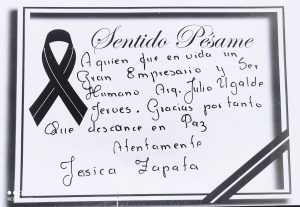 Sentido Pésame
Aquien que en vida un
Gran Empresario y Ser
Humano Arq. Julio Ugalde
Jerves. Gracias por tanto
Que descance en Paz
Atentamente
Jessica Zapata